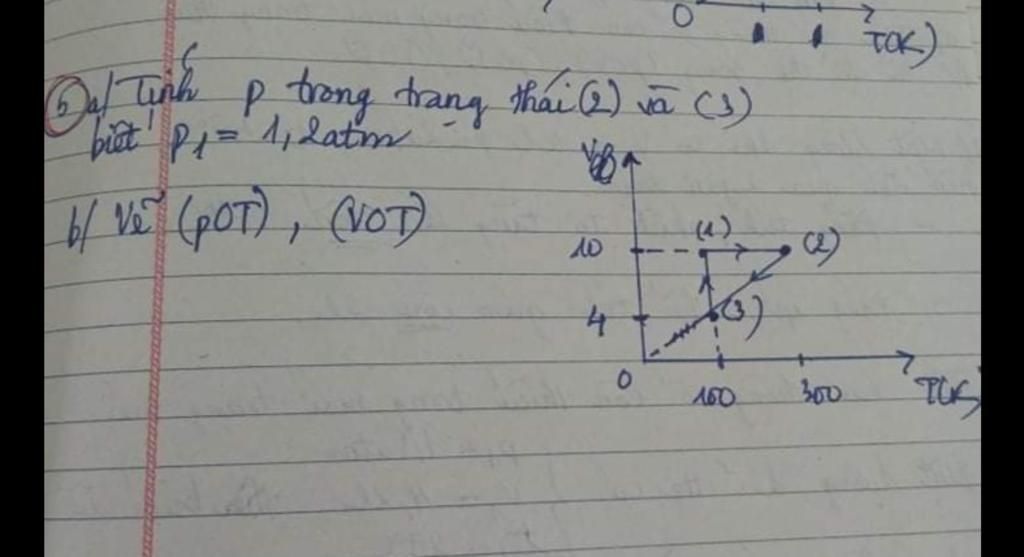 0
T(K)
5 a/ Tính p trong trạng thái (2) và (3)
biết p1 = 1,2atm
b/ Vẽ (pOT), (VOT)
10
(1)
(2)
4
(3)
0
300
T(K)